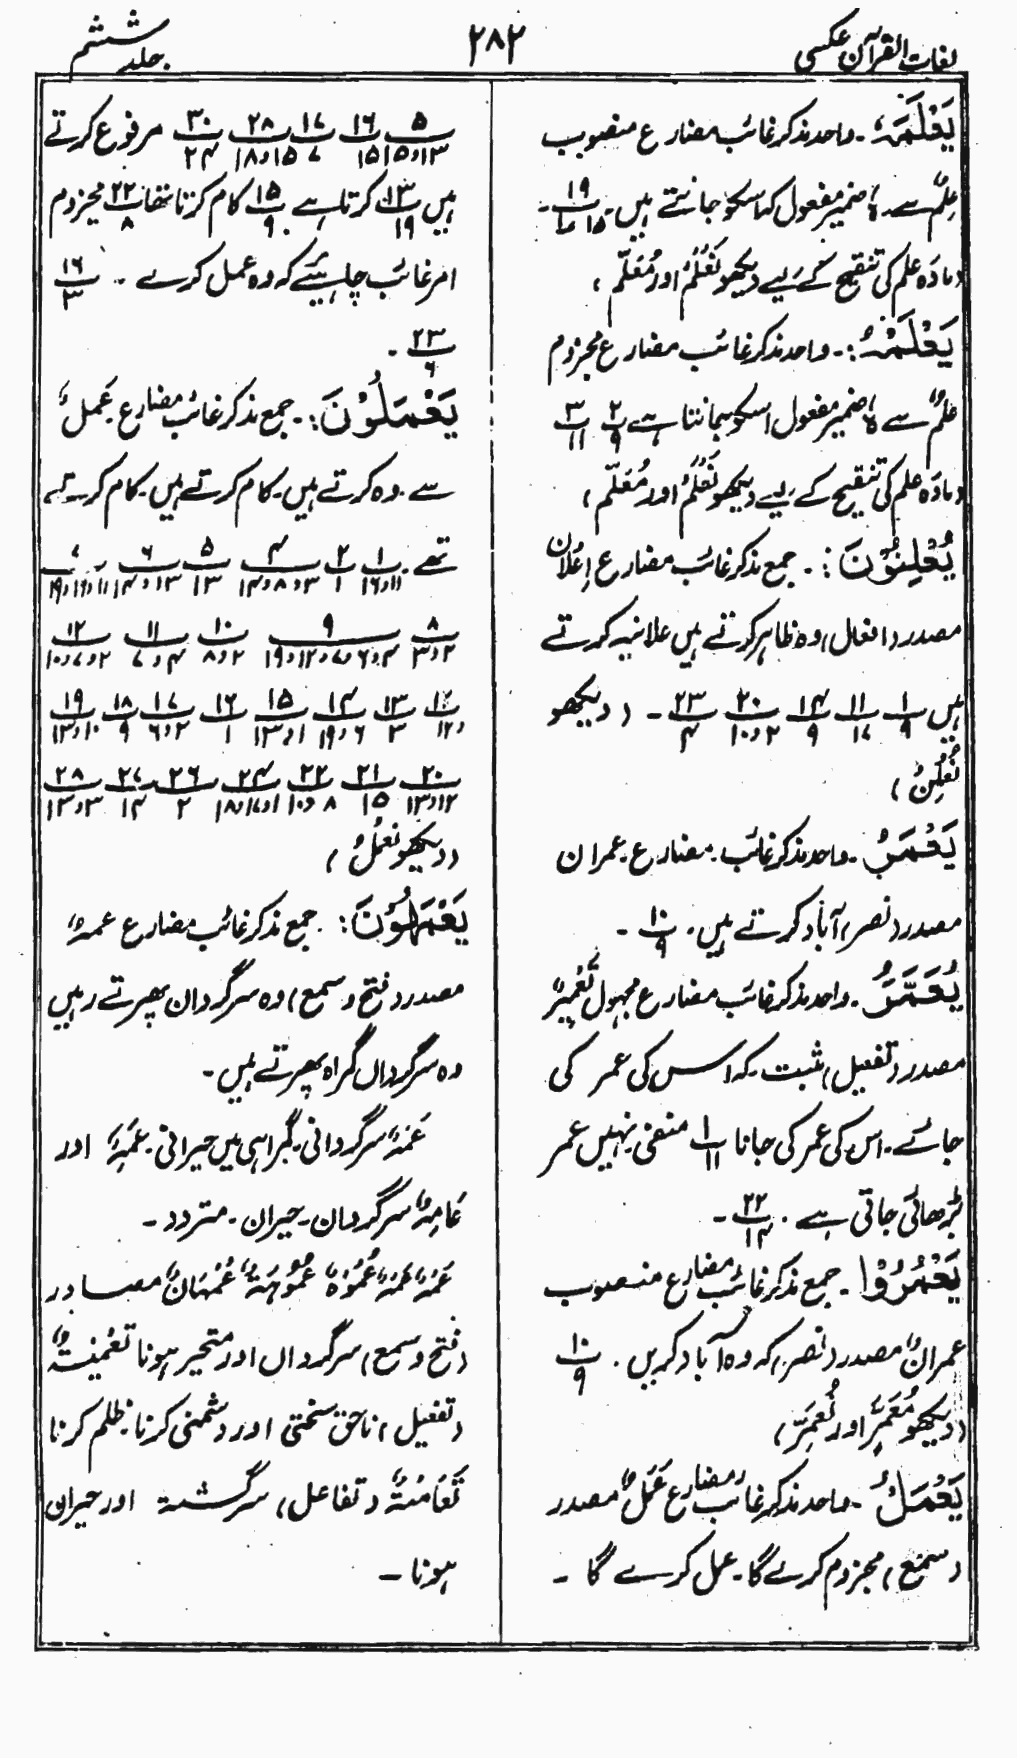 لغات القرآن عکسی
۲۸۲
جلد ششم
یَعْلَمَہٗ ۔ واحد مذکر غائب مضارع منصوب
عِلْمٌ سے۔ ہٗ ضمیر مفعول کہ اسکو جانتے ہیں۔ ۱۹
(مادہ علم کی تنقیح کے لیے دیکھو نَعْلَمُ اور مُعَلَّمٌ)
یَعْلَمْہُ :۔ واحد مذکر غائب مضارع مجزوم
عِلْمٌ سے ہٗ ضمیر مفعول اسکو جانتا ہے ۲/۹ ۳/۱۱
(مادہ علم کی تنقیح کے لیے دیکھو نَعْلَمُ اور مُعَلَّمٌ)
یُعْلِنُوْنَ :۔ جمع مذکر غائب مضارع اِعْلَانٌ
مصدر (افعال) وہ ظاہر کرتے ہیں علانیہ کرتے
ہیں ۱/۹ ۱۱/۱۷ ۱۴/۹ ۲۰/۲و۱۰ ۲۳/۴ ۔ (دیکھو
نُعْلِنُ)
یَعْمُرُ ۔ واحد مذکر غائب۔ مضارع۔ عمران
مصدر (نصر) آباد کرتے ہیں۔ ۱۰/۹ ۔
یُعَمَّرُ ۔ واحد مذکر غائب مضارع مجہول تَعْمِیْرٌ
مصدر (تفعیل) مثبت۔ کہ اس کی عمر کی
جائے۔ اس کی عمر کی جانا ۱/۱۱ منفی۔ نہیں عمر
بڑھائی جاتی ہے ۔ ۲۲/۱۴ ۔
یَعْمُرُوْا ۔ جمع مذکر غائب مضارع منصوب
عمرانٌ مصدر (نصر) کہ وہ آباد کریں ۔ ۱۰/۹
(دیکھو مُعَمَّرٍ اور نُعَمِّرْ)
یَعْمَلُ ۔ واحد مذکر غائب مضارع عَمَلٌ مصدر
(سمع) مجزوم کرے گا۔ عمل کرے گا ۔
۵/۱۳و۱۵ ۱۶/۱۵ ۱۷/۷ ۲۸/۱۵و۱۸ ۳۰/۲۴ مرفوع کرتے
ہیں ۱۳/۱۹ کرتا ہے ۱۵/۹ کام کرتا تھا ۲۲/۸ مجزوم
امر غائب چاہیئے کہ وہ عمل کرے ۔ ۱۶/۳
۲۳/۶ ۔
یَعْمَلُوْنَ :۔ جمع مذکر غائب مضارع عَمَلٌ
سے ۔ وہ کرتے ہیں۔ کام کرتے ہیں۔ کام کرتے
تھے ۱/۱۱و۱۶ ۲/۱ ۴/۳و۸و۱۴ ۵/۱۳ ۶/۱۳و۱۴ ۷
۸/۲و۳ ۹/۴و۶و۷و۱۲و۱۹ ۱۰/۲و۸ ۱۱/۴و۷ ۱۲/۲و۷و۱۰
۱۲ ۱۳/۳ ۱۴/۶و۱۹ ۱۵/۱و۱۳ ۱۶/۱ ۱۷/۲و۶ ۱۸/۹ ۱۹/۱۰و۱۳
۲۰/۱۲و۱۳ ۲۱/۱۵ ۲۲/۸و۱۰ ۲۴/۱و۱۷و۱۸ ۲۶/۲ ۲۷/۱۴ ۲۸/۳و۱۳
(دیکھو نَعْمَلُ)
یَعْمَہُوْنَ : ۔ جمع مذکر غائب مضارع عمہٌ
مصدر (فتح و سمع) وہ سرگردان پھرتے رہیں
وہ سرگرداں گمراہ پھرتے ہیں ۔
عَمَہٌ سرگردانی۔ گمراہی میں حیرانی۔ عَمِہٌ اور
عَامِہٌ سرگردان۔ حیران۔ متردد ۔
عَمْہٌ عَمَہٌ عُمُوْہٌ عُمُوْہَۃٌ عَمَہَانٌ مصادر
(فتح و سمع) سرگرداں اور متحیر ہونا تَعْمِیْہٌ
(تفعیل) ناحق سختی اور دشمنی کرنا۔ ظلم کرنا
تَعَامُہٌ (تفاعل) سرگشتہ اور حیران
ہونا ۔